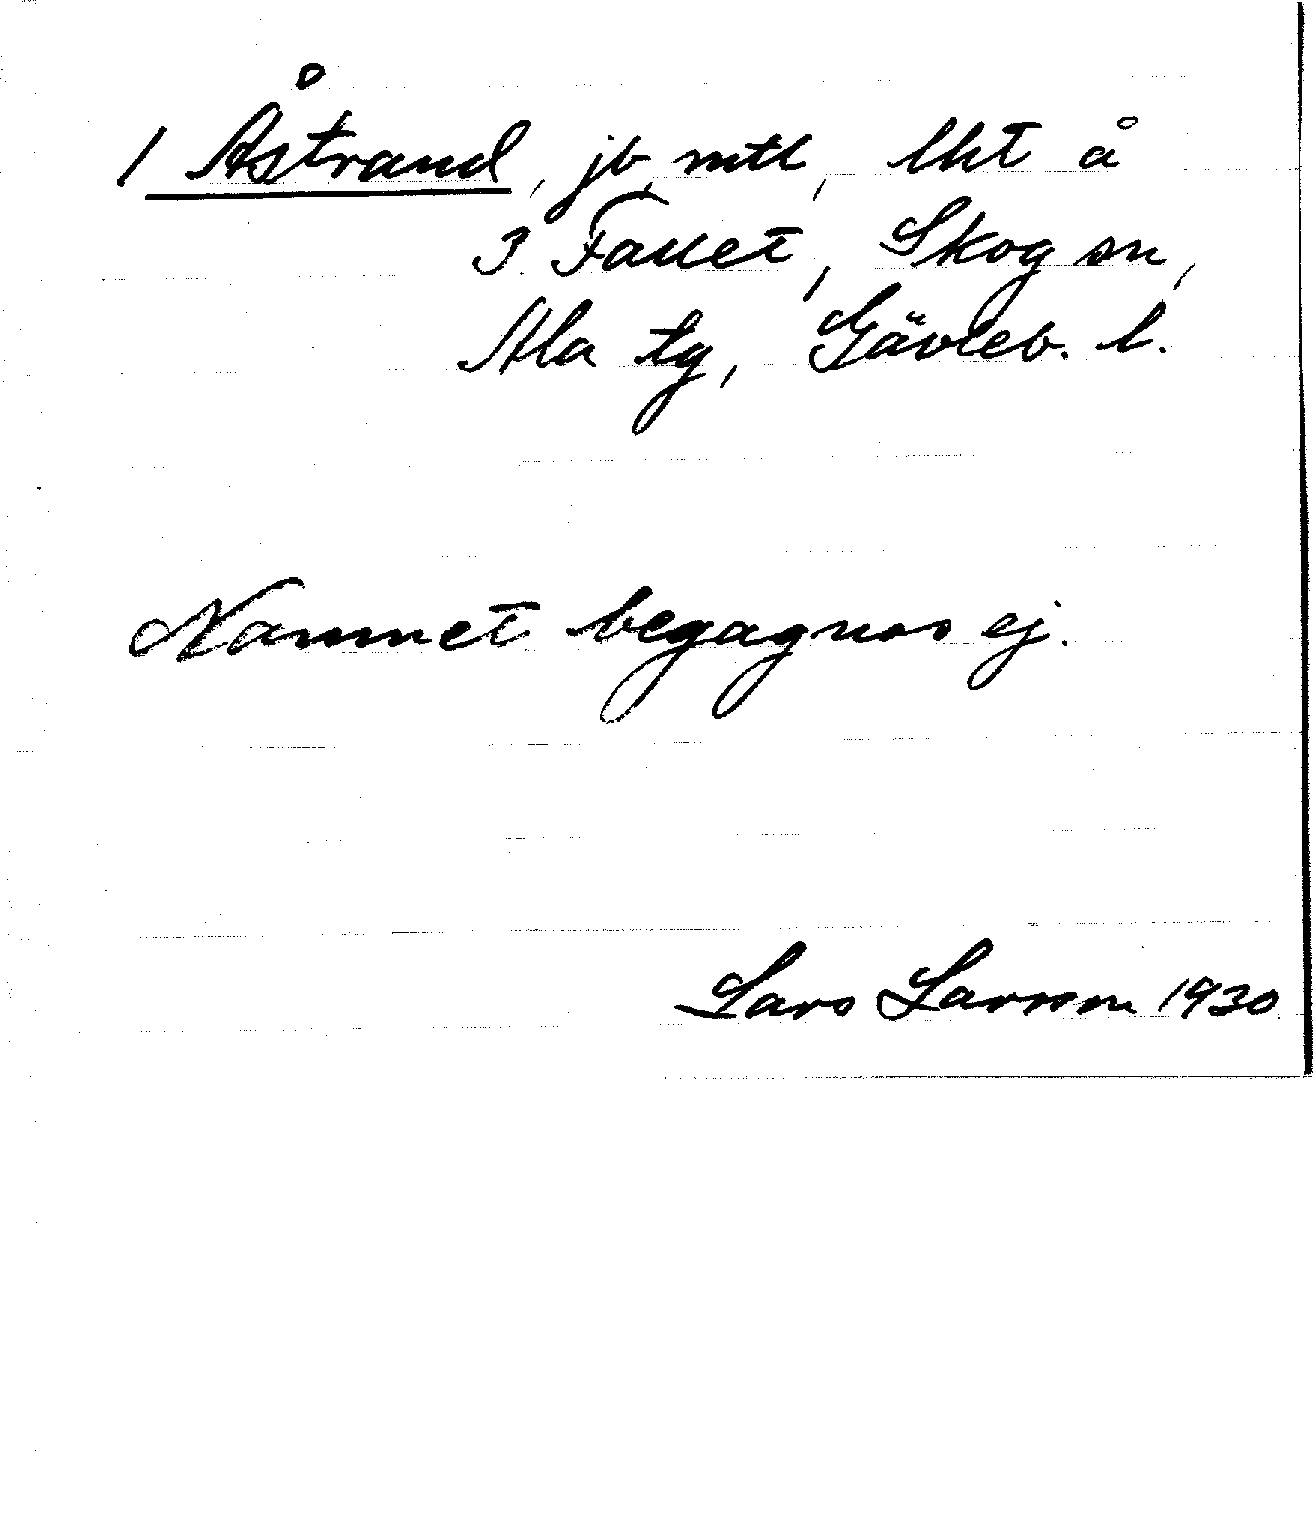 1 Åstrand, jb, mtl, lht å
3 Fallet, Skog sn,
Ala tg, Gävleb. l.
Namnet begagnas ej.
Lars Larsson 1930